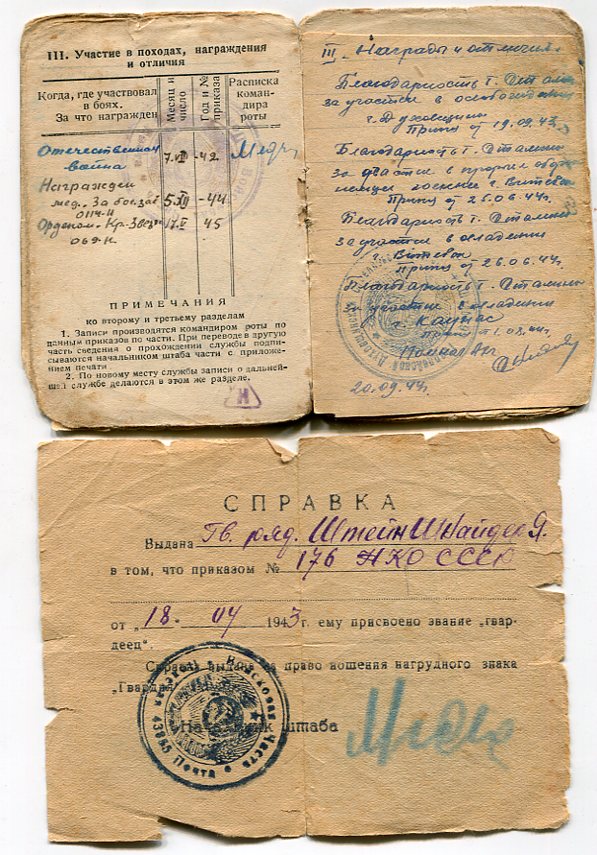 III. Участие в походах, награждения
и отличия
Когда, где участвовал
в боях.
За что награжден
Месяц и
число
Год и №
приказа
Расписка
коман-
дира
роты
Отечественная
война
42
Награжден
мед. За боевые
5.XII -44
Орденом Кр. Звезда
45
ПРИМЕЧАНИЯ
ко второму и третьему разделам
1. Записи производятся командиром роты по
данным приказов по части. При переводе в другую
часть сведения о прохождении службы подпи-
сываются начальником штаба части с приложе-
нием печати.
2. По новому месту службы записи о дальней-
шей службе делаются в этом же разделе.
III. Награды и отличия
Благодарность т. Сталина
за участие в освобождении
г. Духовщина
Приказ от 19.09.43
Благодарность т. Сталина
за участие в прорыве оборо
г. Витебск
Приказ от 25.06.44г.
Благодарность т. Сталина
за участие в овладении
г. Витебск
Приказ от 26.06.44г.
Благодарность т. Сталина
за участие в овладении
г. Каунас
20.09.44г.
СПРАВКА
Выдана Гв. ряд. Штейншнайдер Я.
в том, что приказом № 176 НКО СССР
от „18. 04 1943г. ему присвоено звание „гвар-
деец".
Справка выдана на право ношения нагрудного знака
„Гвардия
Начальник штаба
Войсковая Часть
Почта 43865